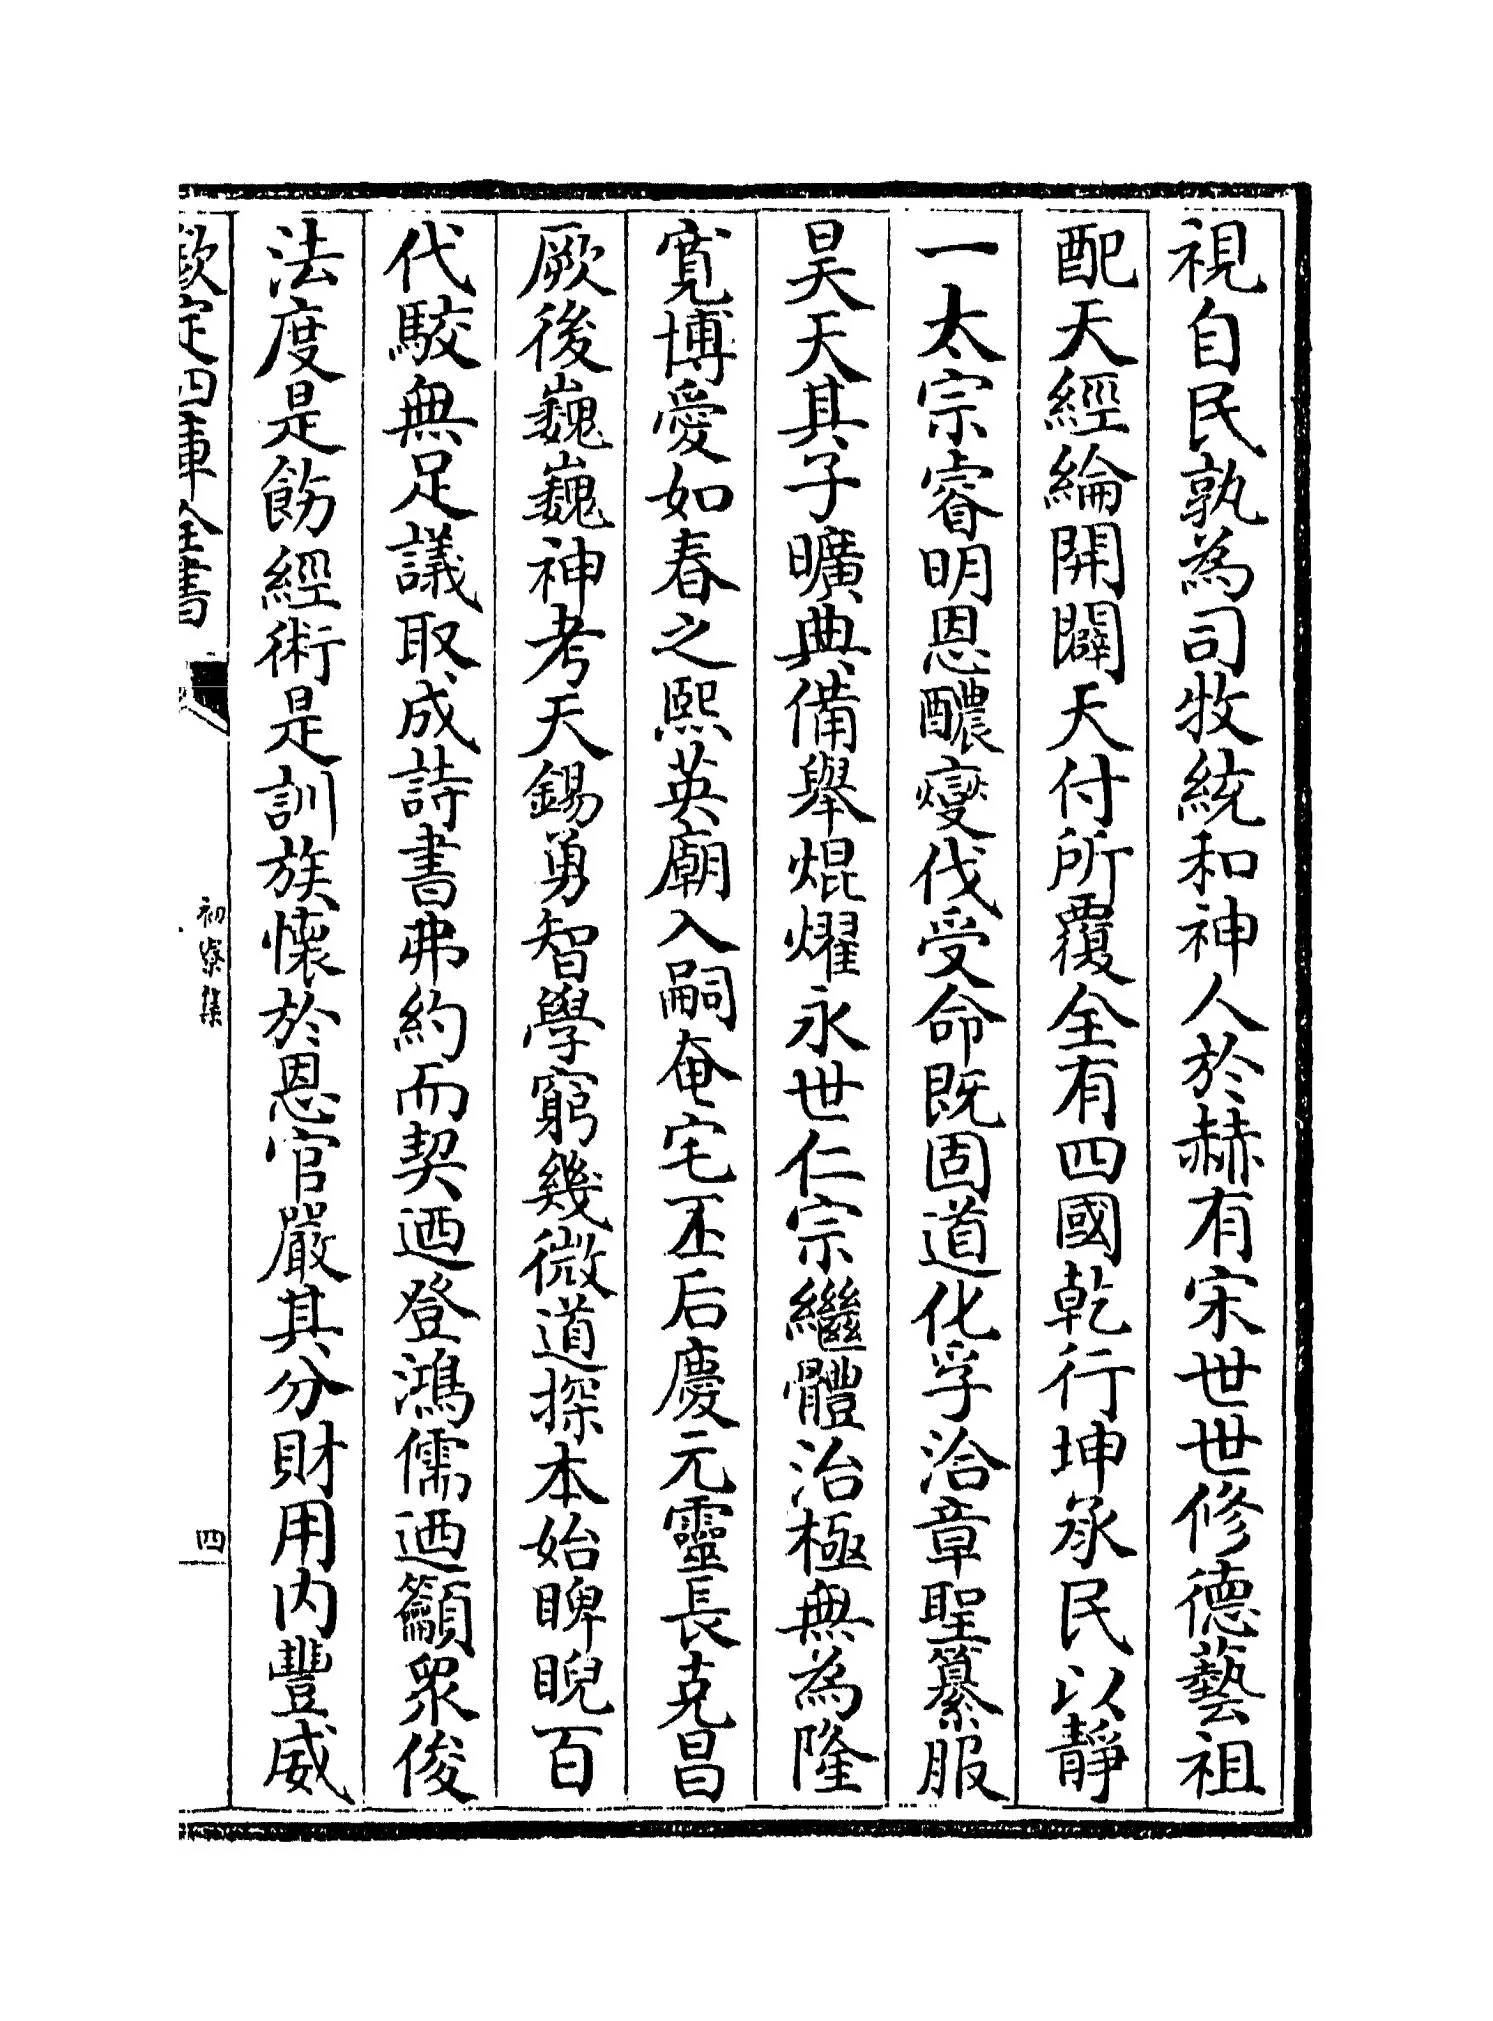 視自民孰為司牧統和神人於赫有宋世世修德藝祖
配天經綸開闢天付所覆全有四國乾行坤承民以靜
一太宗睿明恩醲燮伐受命既固道化孚洽章聖纂服
昊天其子曠典備舉焜燿永世仁宗繼體治極無為隆
寛博愛如春之熙英廟入嗣奄宅丕后慶元靈長克昌
厥後巍巍神考天錫勇智學窮幾微道探本始睥睨百
代駮無足議取成詩書弗約而契迺登鴻儒迺籲衆俊
法度是飭經術是訓族懷於恩官嚴其分財用内豐威
欽定四庫全書
初寮集
四